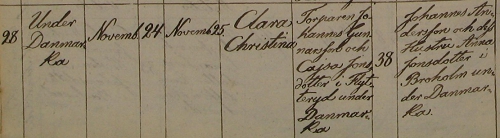 28
Under
Danmar-
ka
Novemb. 24
Novemb. 25
Clara
Christina
Torparen Jo-
hannes Gun-
narsson och
Cajsa Jons-
dotter i
teryd under
Danmar-
ka
38
Johannes An-
dersson och dess
Hustru Anna
Jonsdotter i
Broholm un-
der Danmar-
ka.